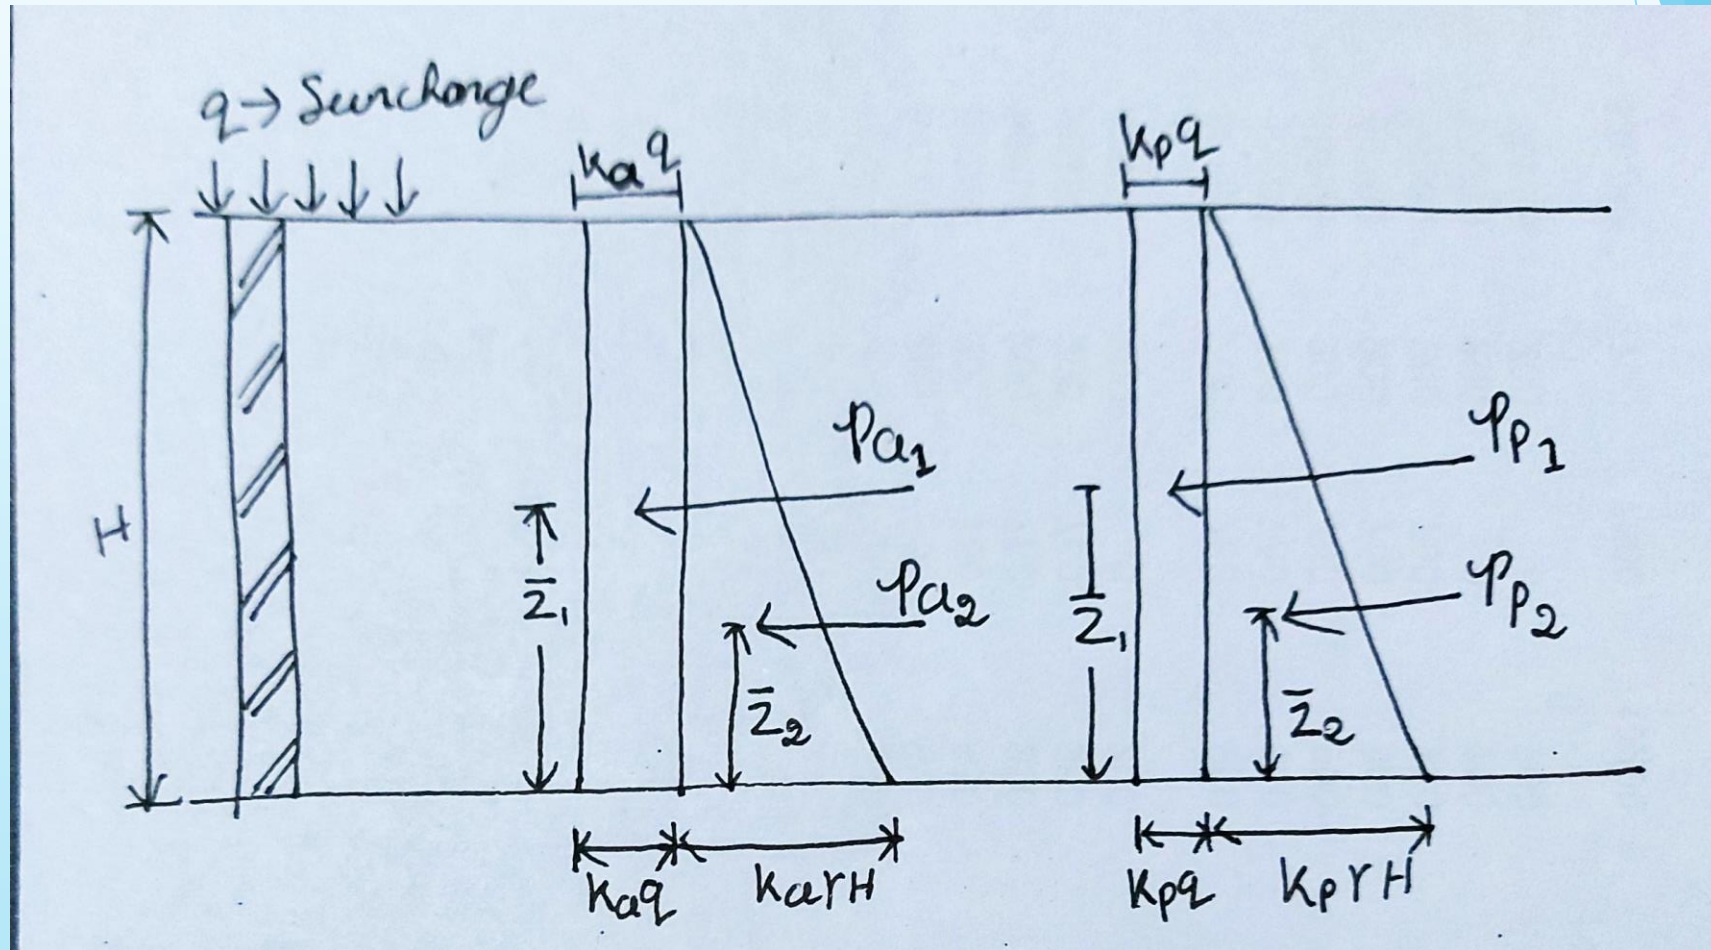 q → Surcharge
kaq
kpq
H
Pa1
Pp1
z̄1
Pa2
z̄1
Pp2
z̄2
z̄2
kaq
kaγH
kpq
kpγH